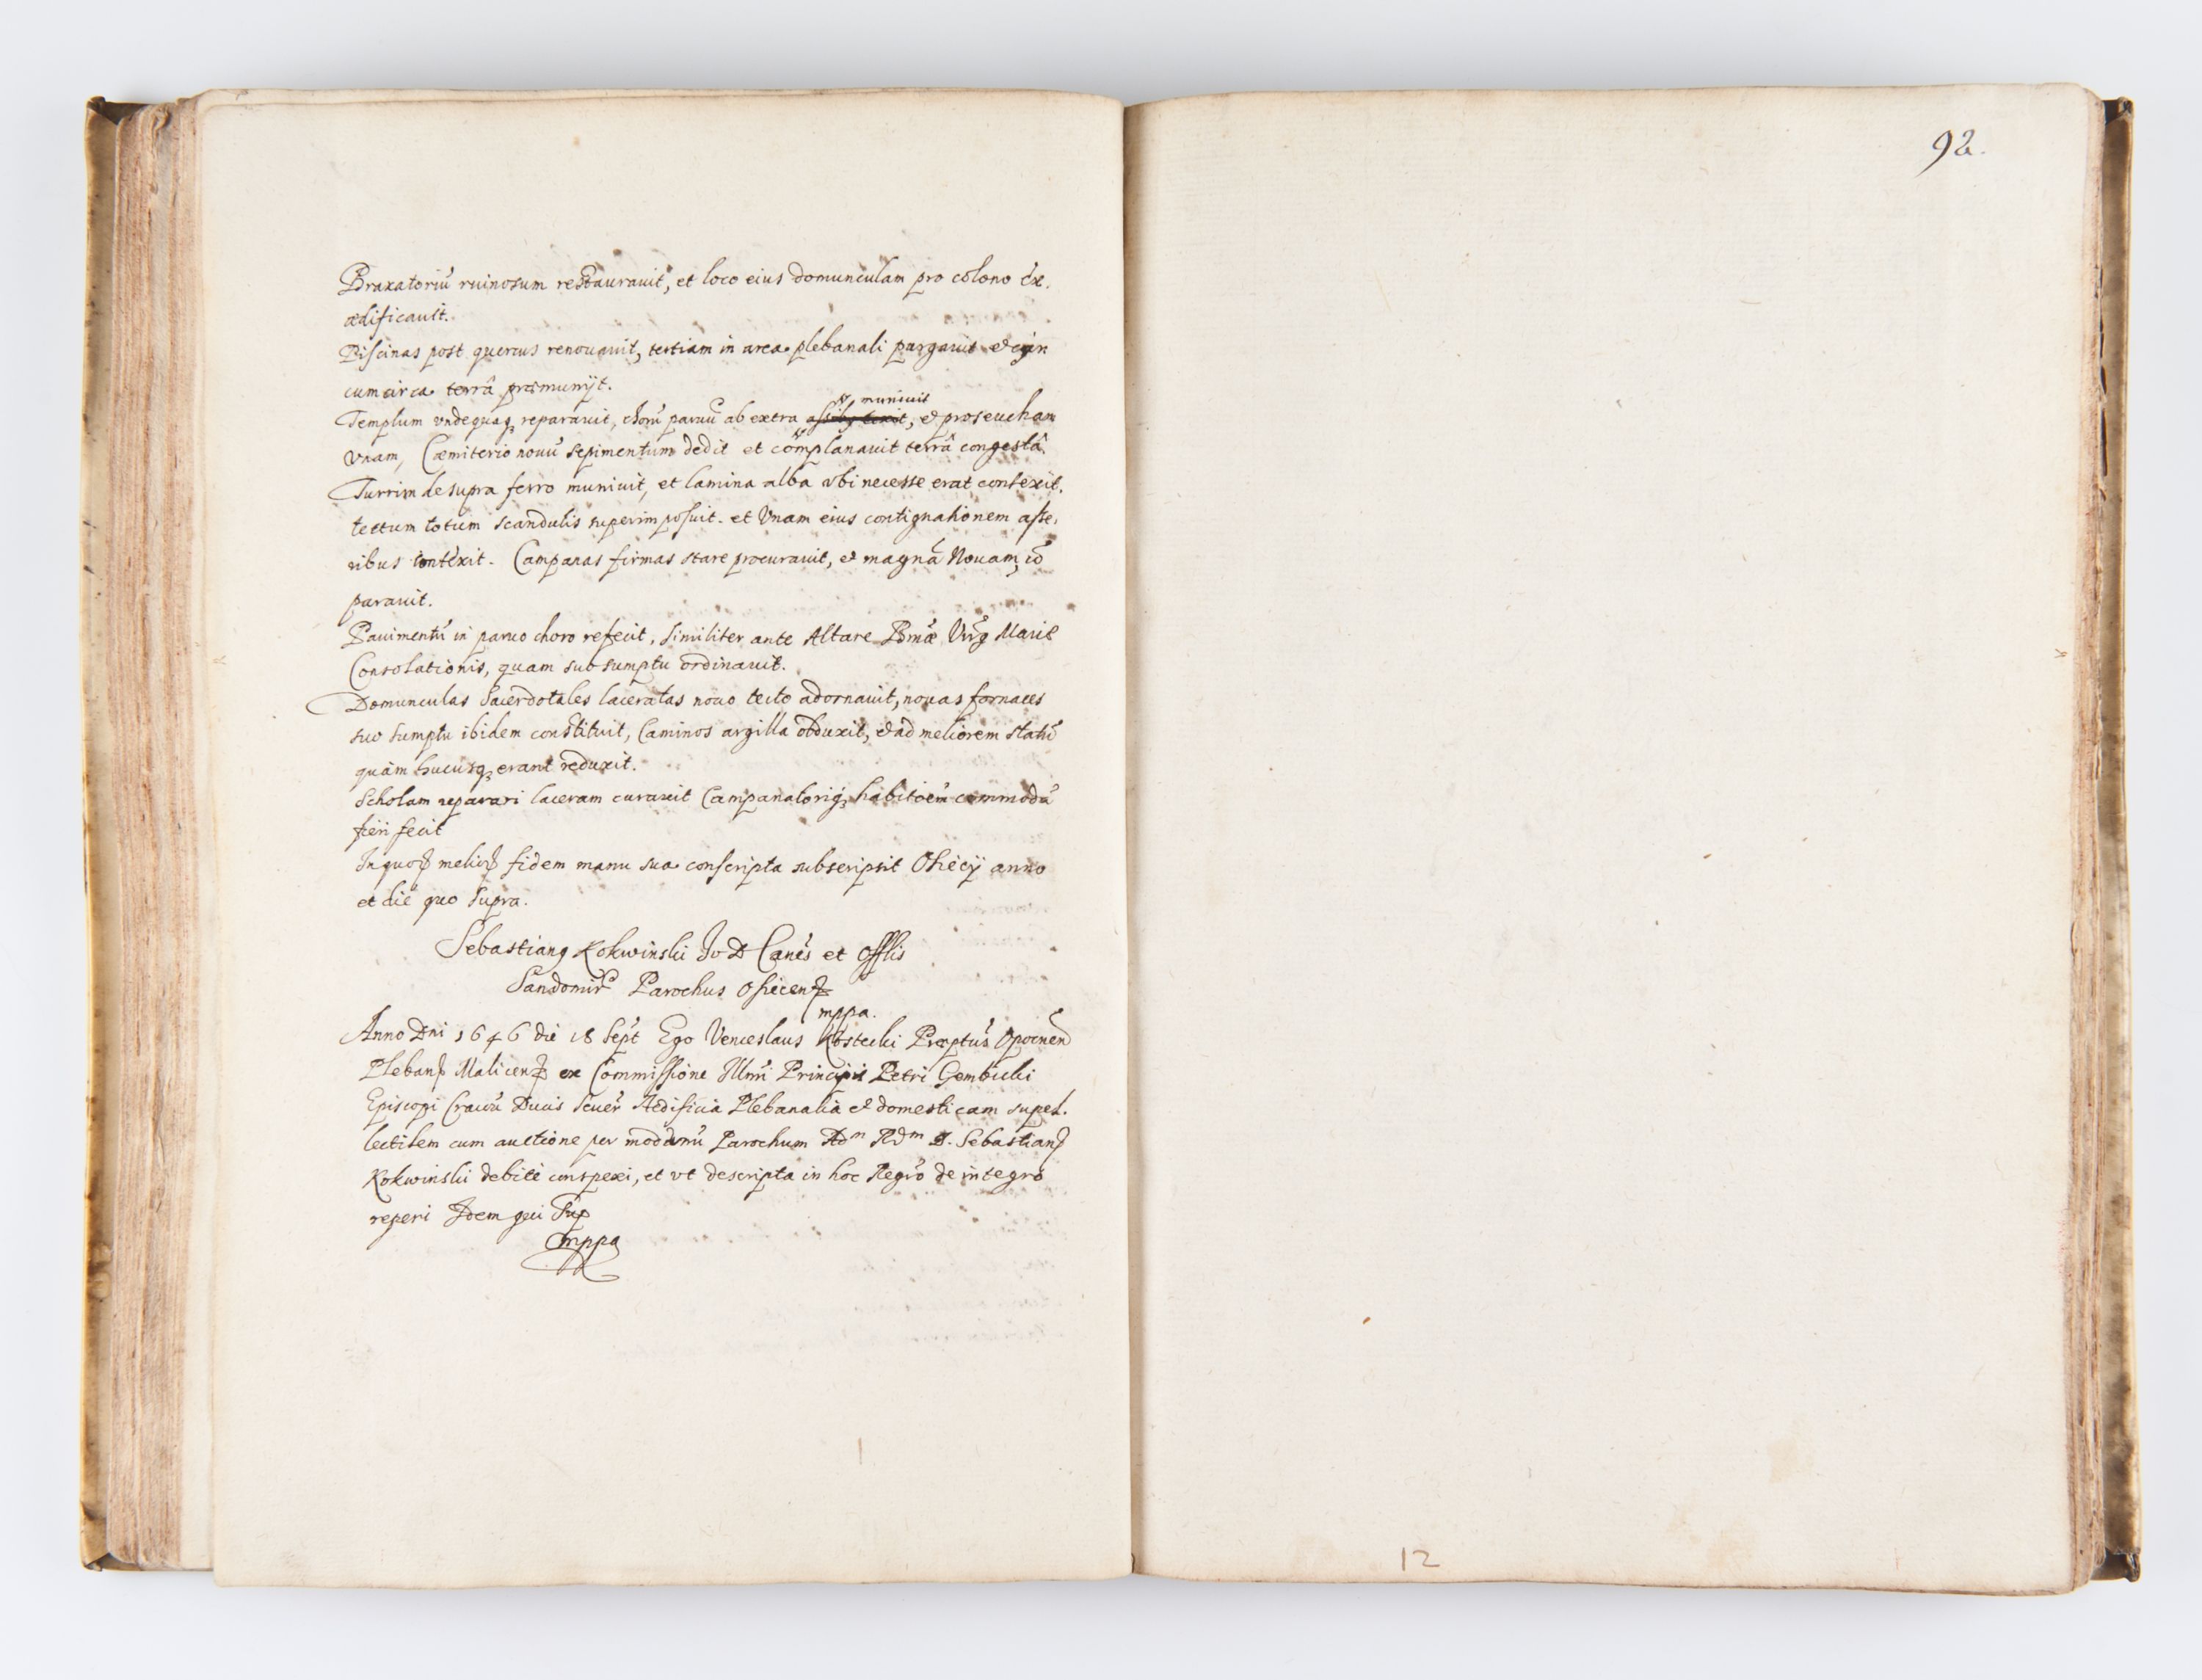 92.
Braxatoriū ruinosum restaurauit, et loco eius domunculam pro colono ex.
ædificauit.
Piscinas post quercus renouauit, tertiam in area plebanali purgauit et
cumcirca terrâ præmunijt.
Templum vndequaq; reparauit, chorū paruū ab extra muniuit, et proseucham
vnam, Cæmiterio nouū sepimentum dedit et complanauit terrâ congestâ.
Turrim desupra ferro muniuit, et lamina alba vbi necesse erat contexit.
tectum totum scandulis superimposuit. et Vnam eius contignationem asse,
ribus contexit. Campanas firmas stare procurauit, et magnā Nouam, cō
parauit.
Pauimentū in paruo choro refecit, similiter ante Altare Virg Mariæ
Consolationis, quam suo sumptu ordinauit.
Domunculas Sacerdotales laceratas nouo tecto adornauit, nouas fornaces
suo sumptu ibidem constituit, Caminos argilla obduxit, et ad meliorem statū
quàm hucusq; erant reduxit.
Scholam reparari laceram curauit Campanatoriq; habitōem commodā
fieri fecit
In quoꝝ melioꝝ fidem manu sua conscripta subscripsit Osiecÿ anno
et die quo supra.
Sebastiang Kokwinski JvD Canēs et Offlis
Sandomir Parochus Osiecenꝭ
mppa.
Anno Dni 1646 die 18 Sept Ego Venceslaus Kostecki Præptus Opocnen
Plebanꝭ Malicenꝭ ex Commissione Illmi Principis Petri Gembicki
Episcopi Cracou Ducis Seuer Aedificia Plebanalia et domesticam supel.
lectilem cum auctione per modernū Parochum Adm Rdm D. Sebastianꝭ
Kokwinski debite conspexi, et vt descripta in hoc Regro de integro
reperi Idem qui Sup
mppa
12